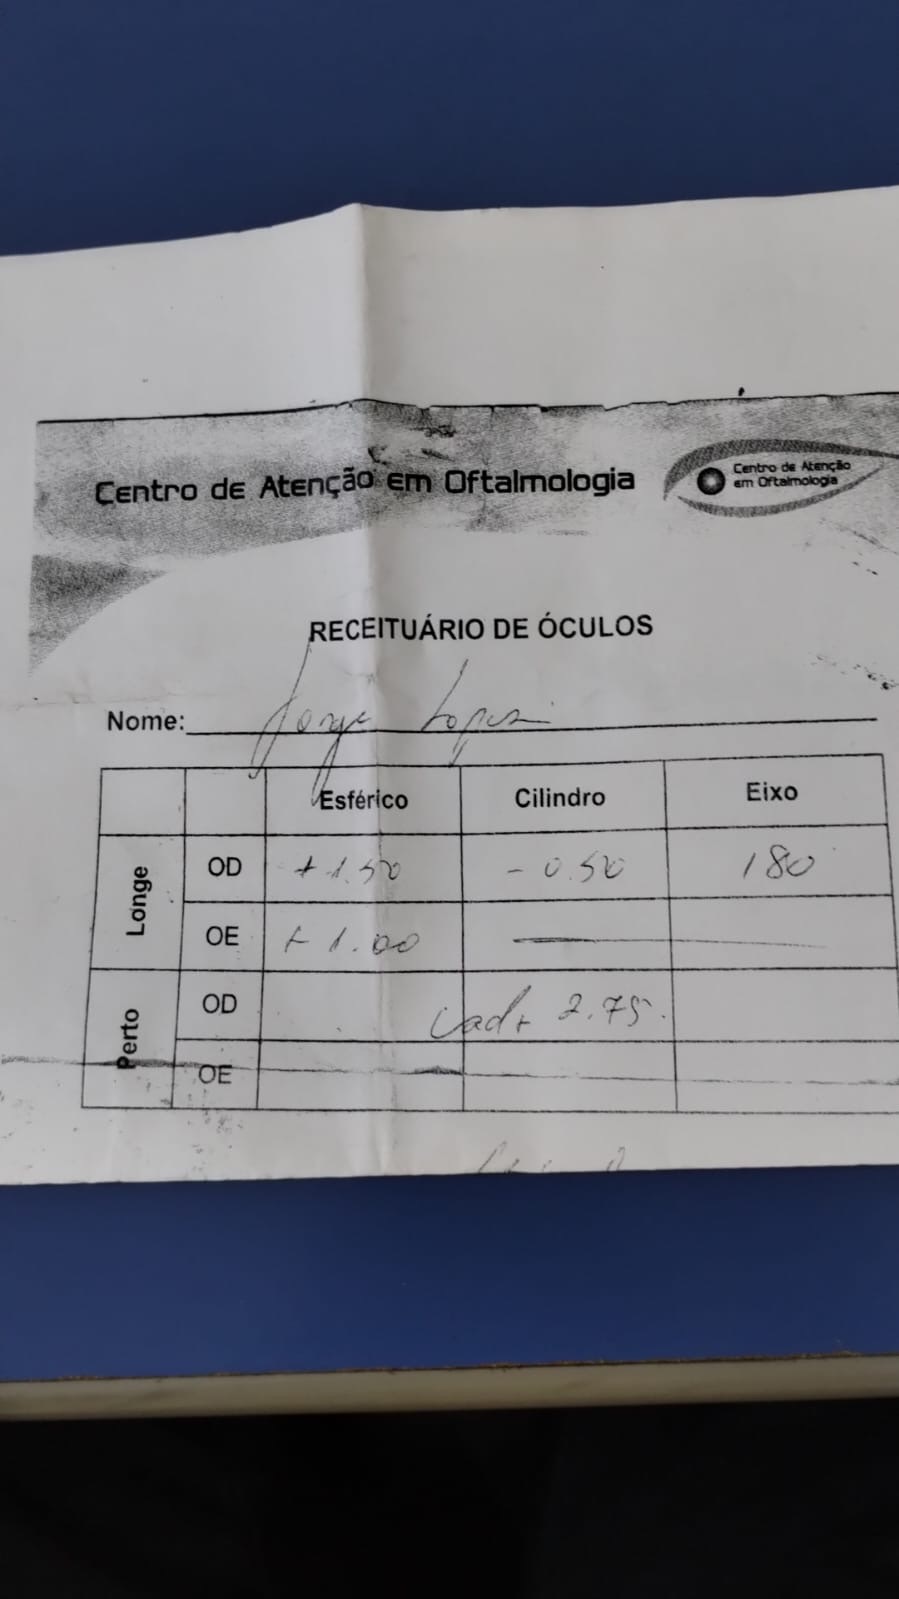 Centro de Atenção em Oftalmologia
Centro de Atenção
em Oftalmologia
RECEITUÁRIO DE ÓCULOS
Nome: Jorge Lopes
Esférico Cilindro Eixo
Longe OD + 1.50 - 0.50 180
OE + 1.00
Perto OD 2.75
OE